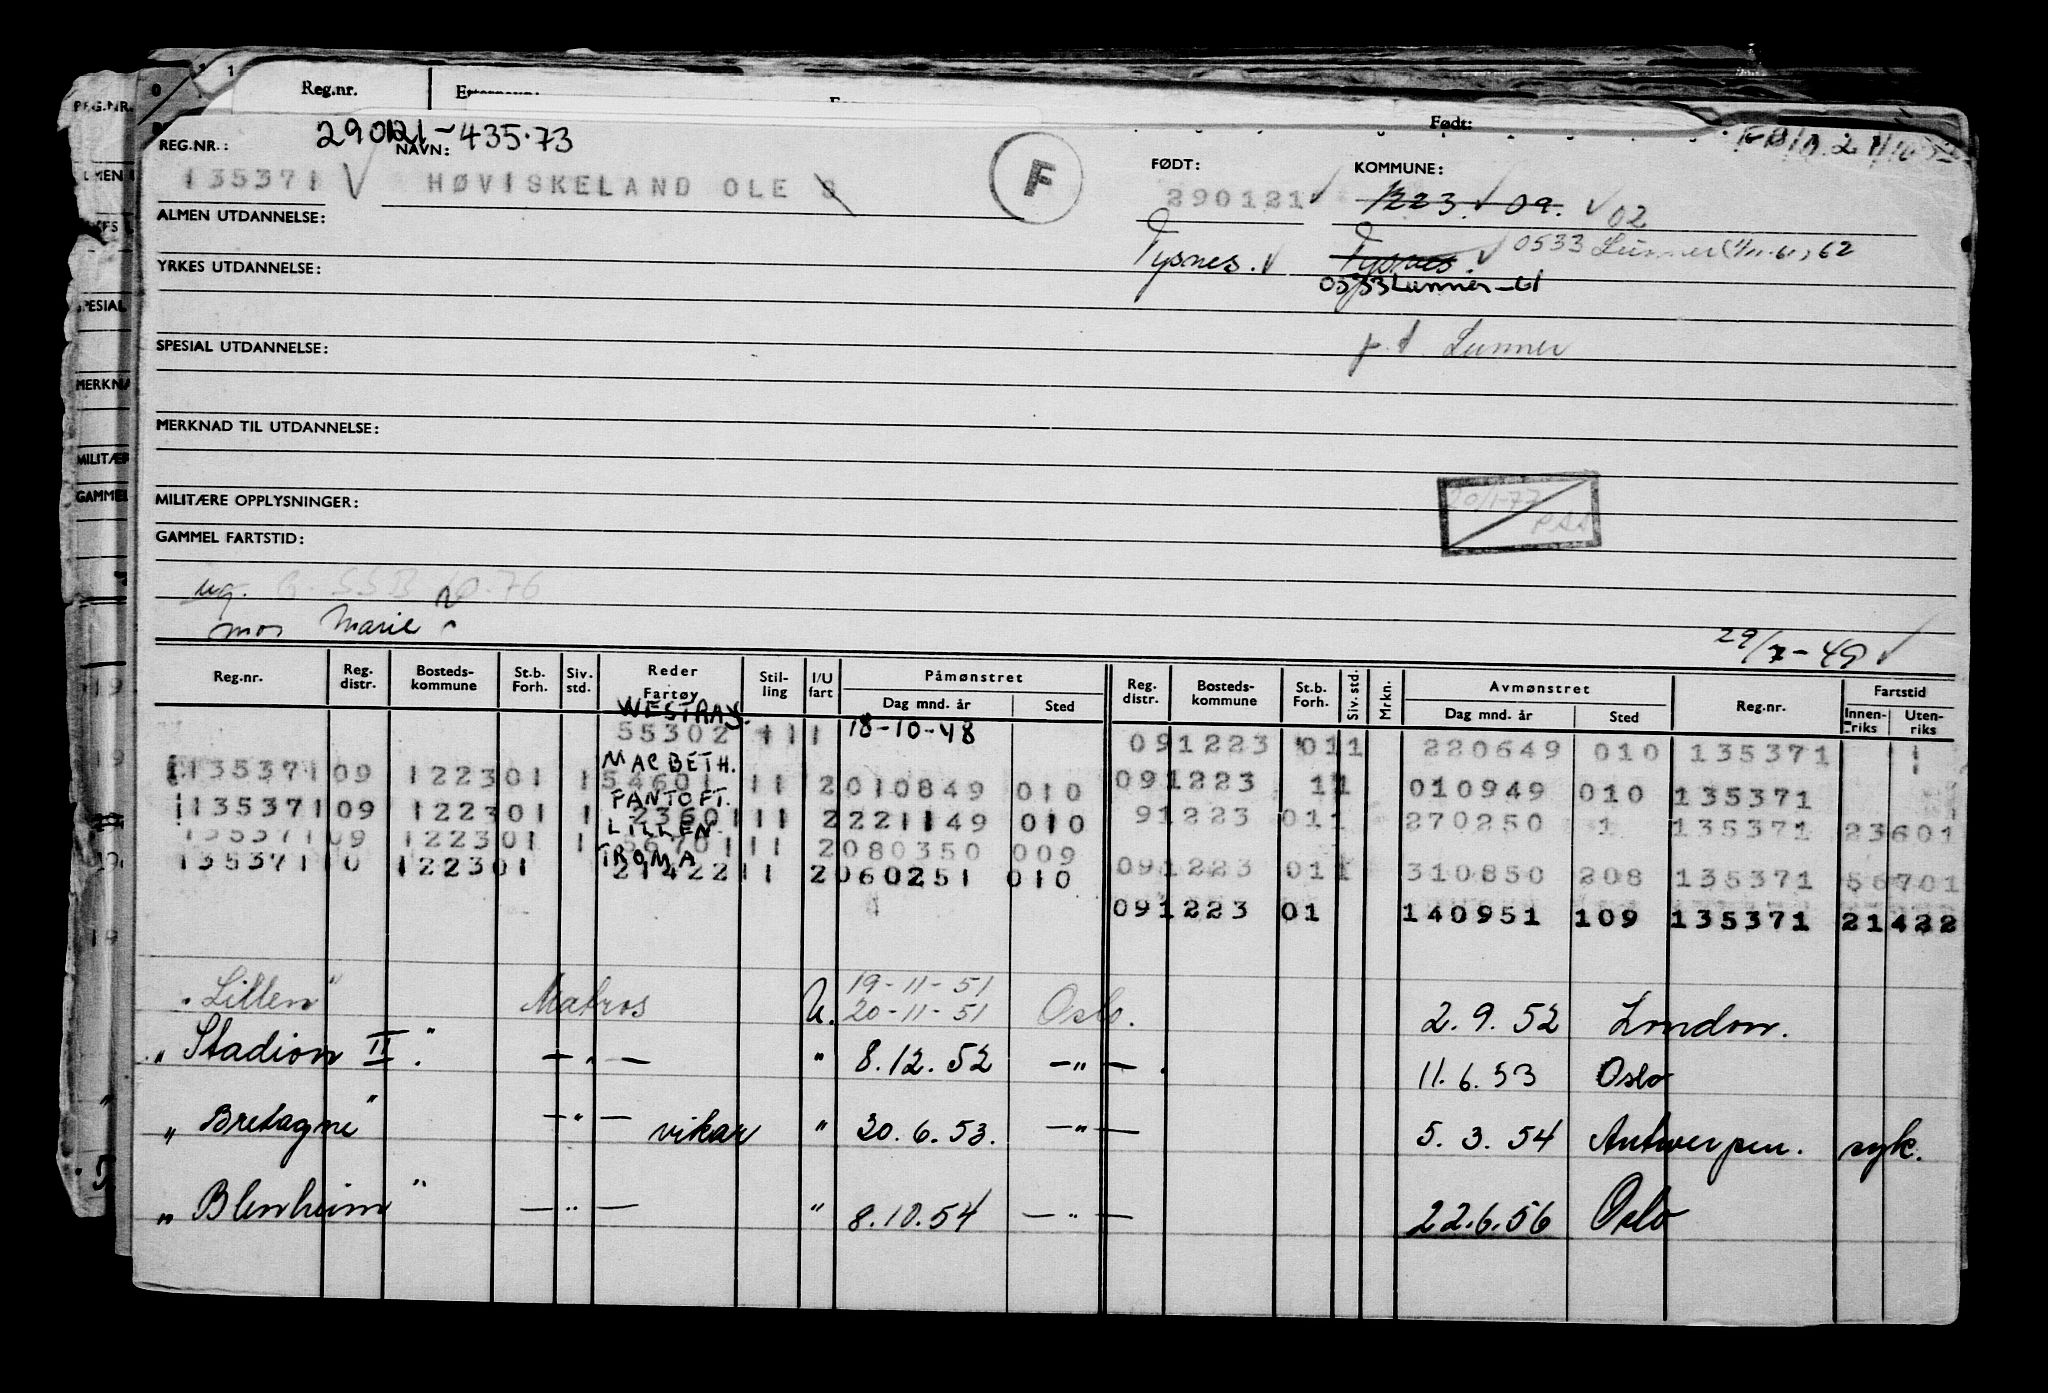 Reg.nr.
Født:
REG.NR.: 290121-435.73
NAVN:
FØDT:
KOMMUNE:
135371 √ HØVISKELAND OLE S
F
290121 √
1223. √ 09. √ 02
ALMEN UTDANNELSE:
Tysnes. √
Tysnes. √ 0533 Lunner 62
0533 Lunner - 61
YRKES UTDANNELSE:
p.t. Lunner
SPESIAL UTDANNELSE:
MERKNAD TIL UTDANNELSE:
MILITÆRE OPPLYSNINGER:
20/1-77
GAMMEL FARTSTID:
ug.
mor Marie
29/7-49 √
Reg.nr. Reg. distr. Bosteds-kommune St.b. Forh. Siv. std. Reder Fartøy Stil-ling I/U fart Påmønstret Dag mnd. år Sted Reg. distr. Bosteds-kommune St.b. Forh. Siv. std. Mrkn. Avmønstret Dag mnd. år Sted Reg.nr. Fartstid Innen-riks Uten-riks
WESTRAY.
55302 11 1 18-10-48 091223 011 220649 010 135371
MACBETH.
135371 09 122301 1 54601 11 2 010849 010 091223 11 010949 010 135371
FANTOFT.
135371 09 122301 1 23601 11 2 221149 010 91223 011 270250 1 135371 23601
LILLEN
135371 09 122301 1 56701 11 2 080350 009
TROMA
135371 10 122301 21422 11 2 060251 010 091223 011 310850 208 135371 56701
091223 01 140951 109 135371 21422
19-11-51
"Lillen" Matros U. 20-11-51 Oslo. 2.9.52 London.
"Stadion II." — " — " 8.12.52 — " — . 11.6.53 Oslo
"Bretagne" — " — vikar " 20.6.53. — " — 5.3.54 Antwerpen. syk.
"Blenheim" — " — " 8.10.54 — " — 22.6.56 Oslo